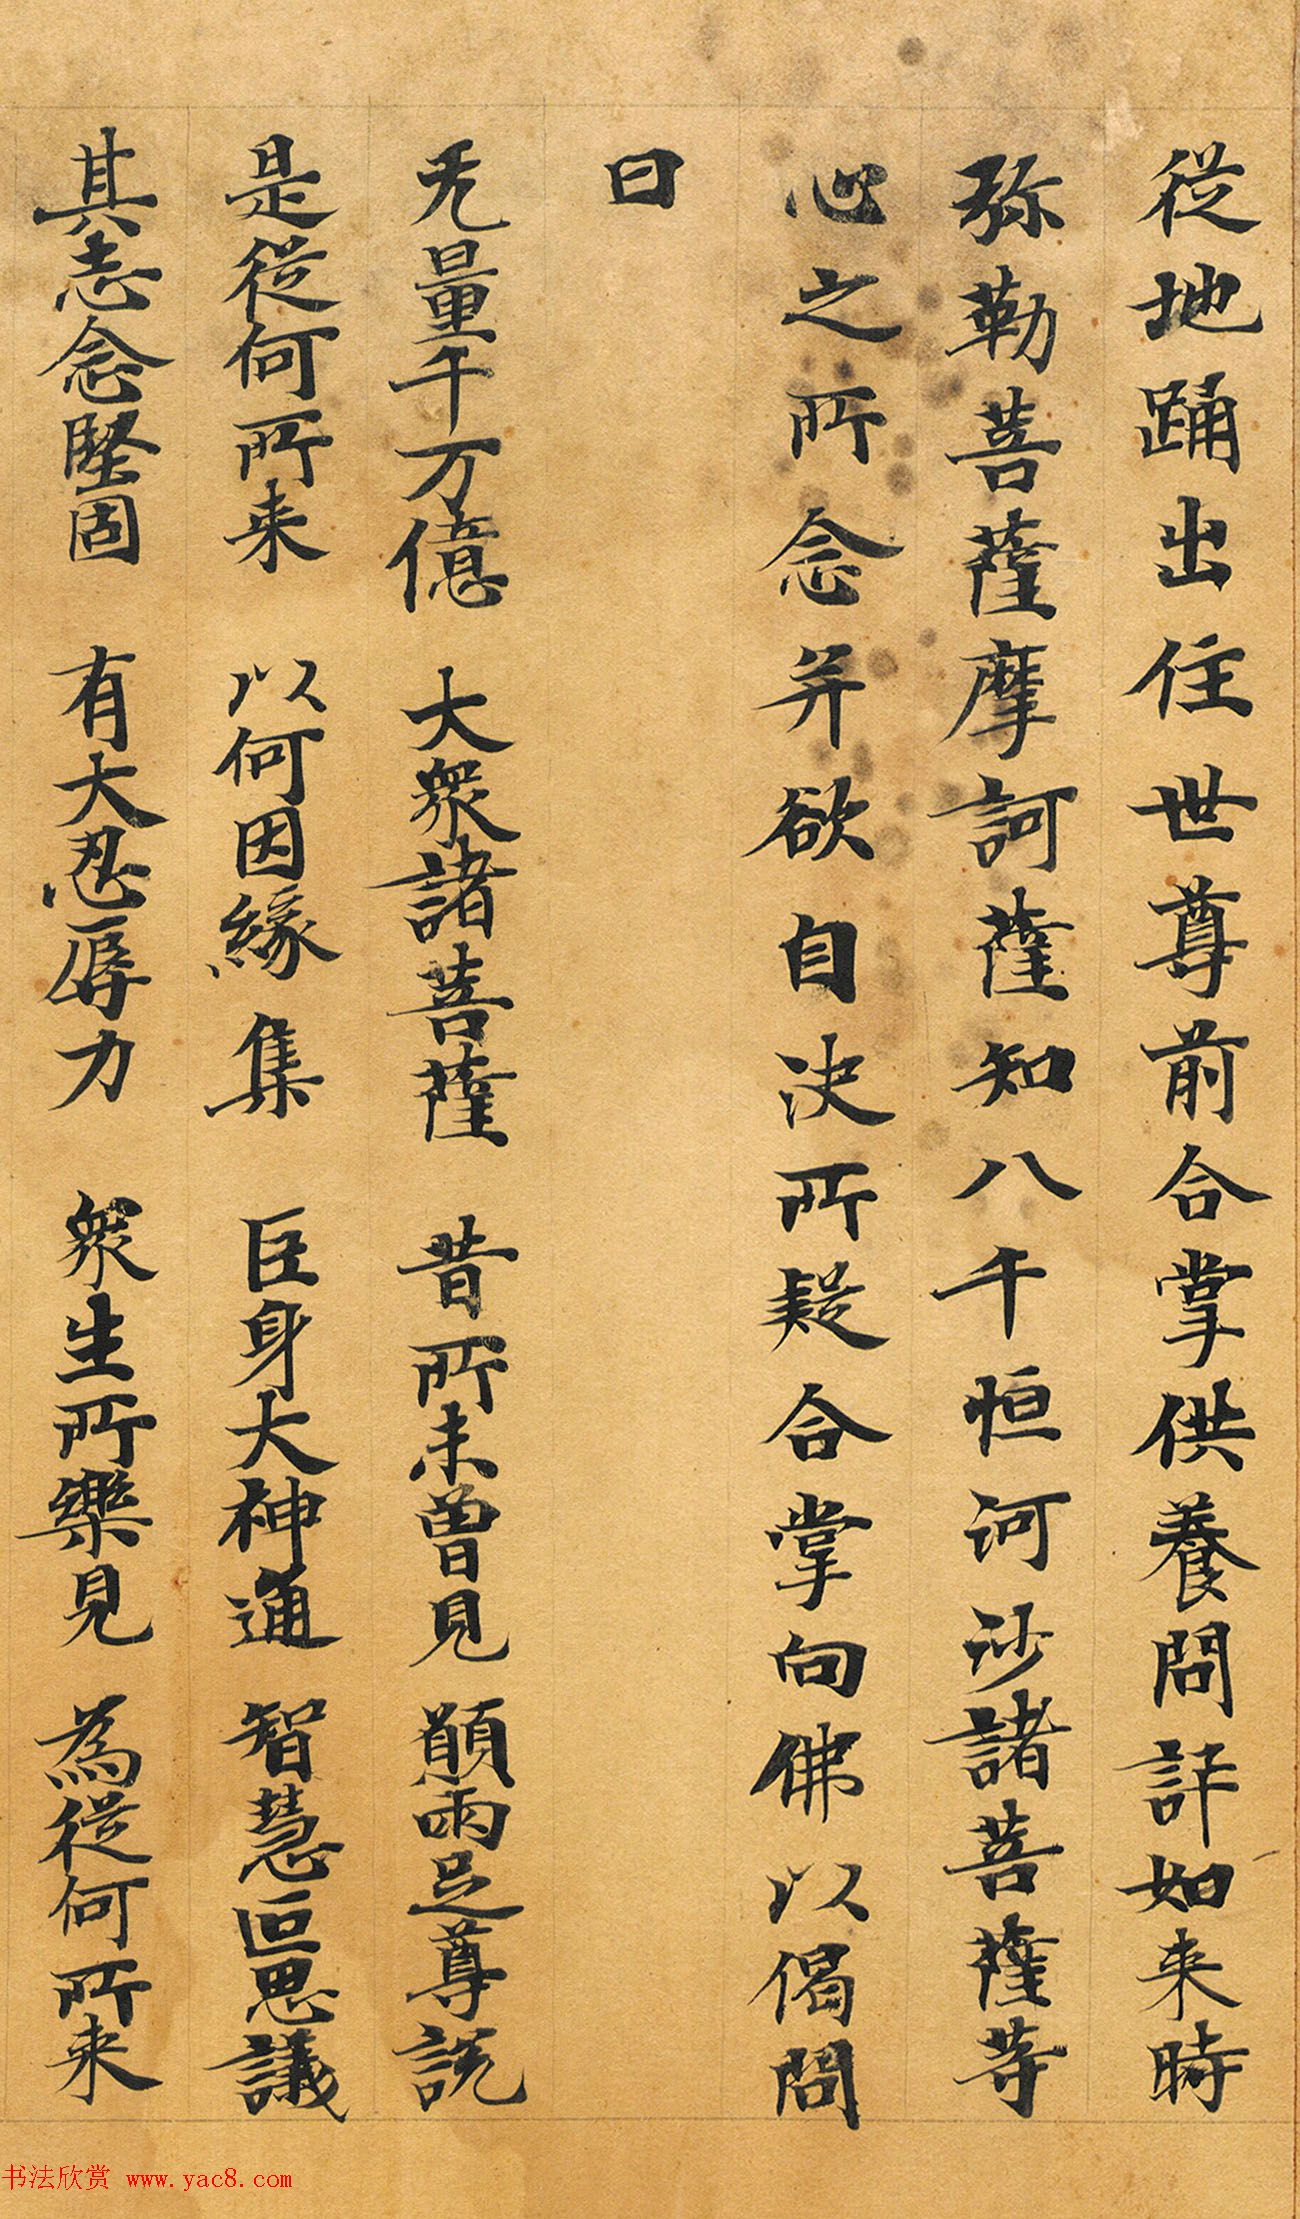 從地踊出住世尊前合掌供養問訊如来時
弥勒菩薩摩訶薩知八千恒河沙諸菩薩等
心之所念并欲自決所疑合掌向佛以偈問
曰
无量千万億　大衆諸菩薩　昔所未曾見　願兩足尊說
是從何所来　以何因緣集　巨身大神通　智慧叵思議
其志念堅固　有大忍辱力　衆生所樂見　為從何所来
书法欣赏 www.yac8.com